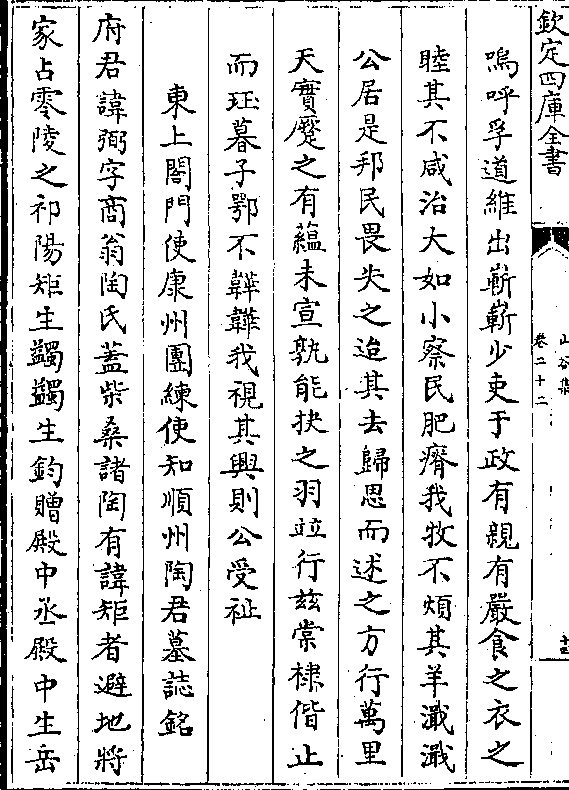 欽定四庫全書
山谷集
卷二十二
嗚呼孚道維出嶄嶄少吏于政有親有嚴食之衣之
睦其不咸治大如小察民肥瘠我牧不煩其羊濈濈
公居是邦民畏失之迨其去歸思而述之方行萬里
天實蹷之有蘊未宣孰能抉之羽竝行兹棠棣偕止
而珏暮子鄂不韡韡我視其興則公受祉
東上閤門使康州團練使知順州陶君墓誌銘
府君諱弼字商翁陶氏蓋柴桑諸陶有諱矩者避地將
家占零陵之祁陽矩生蠲蠲生鈞贈殿中丞殿中生岳